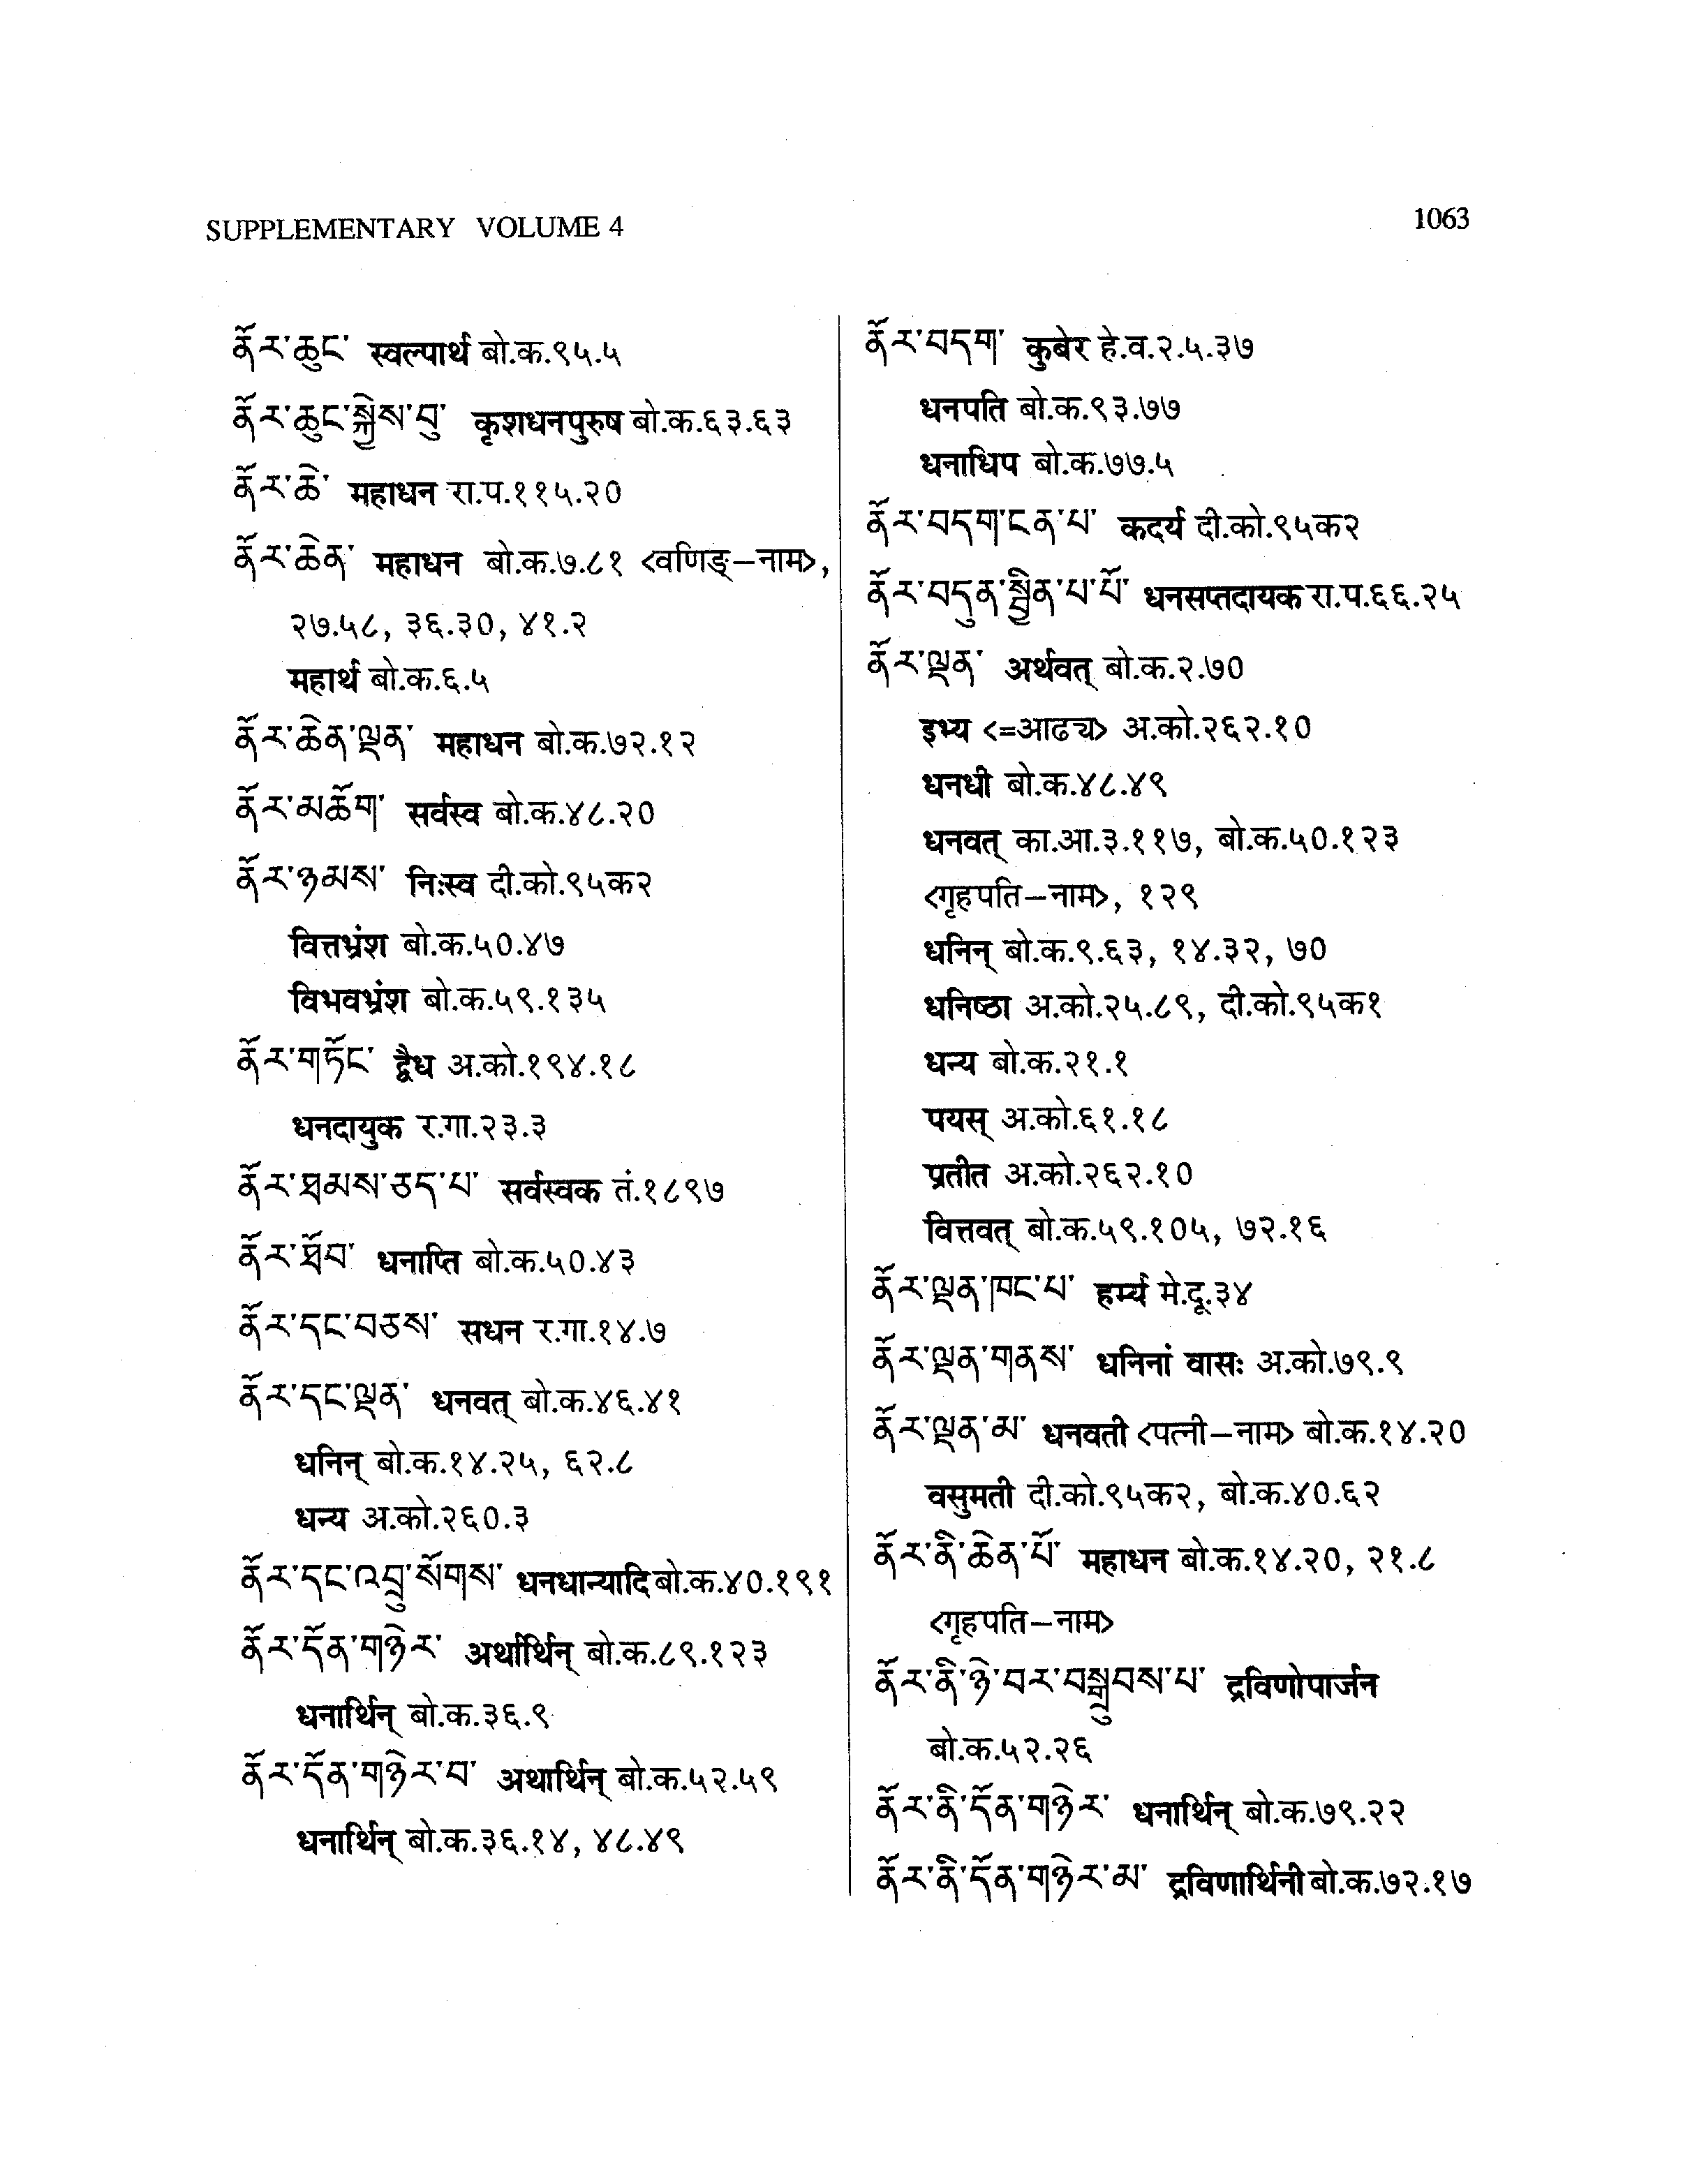 SUPPLEMENTARY VOLUME 4
1063
ནོར་ཆུང་ स्वल्पार्थ बो.क.९५.५
ནོར་ཆུང་སྐྱེས་བུ་ कृशधनपुरुष बो.क.६३.६३
ནོར་ཆེ་ महाधन रा.प.११५.२०
ནོར་ཆེན་ महाधन बो.क.७.८१ <वणिङ्–नाम>,
२७.५८, ३६.३०, ४१.२
महार्थ बो.क.६.५
ནོར་ཆེན་ལྡན་ महाधन बो.क.७२.१२
ནོར་མཆོག་ सर्वस्व बो.क.४८.२०
ནོར་ཉམས་ निःस्व दी.को.९५क२
वित्तभ्रंश बो.क.५०.४७
विभवभ्रंश बो.क.५९.१३५
ནོར་གཏོང་ द्वैध अ.को.१९४.१८
धनदायुक र.गा.२३.३
ནོར་ཐམས་ཅད་པ་ सर्वस्वक तं.१८९७
ནོར་ཐོབ་ धनाप्ति बो.क.५०.४३
ནོར་དང་བཅས་ सधन र.गा.१४.७
ནོར་དང་ལྡན་ धनवत् बो.क.४६.४१
धनिन् बो.क.१४.२५, ६२.८
धन्य अ.को.२६०.३
ནོར་དང་འབྲུ་སོགས་ धनधान्यादि बो.क.४०.१९१
ནོར་དོན་གཉེར་ अर्थार्थिन् बो.क.८९.१२३
धनार्थिन् बो.क.३६.९
ནོར་དོན་གཉེར་བ་ अथार्थिन् बो.क.५२.५९
धनार्थिन् बो.क.३६.१४, ४८.४९
ནོར་བདག་ कुबेर हे.व.२.५.३७
धनपति बो.क.९३.७७
धनाधिप बो.क.७७.५
ནོར་བདག་ངན་པ་ कदर्य दी.को.९५क२
ནོར་བདུན་སྦྱིན་པ་པོ་ धनसप्तदायक रा.प.६६.२५
ནོར་ལྡན་ अर्थवत् बो.क.२.७०
इभ्य <=आढ्य> अ.को.२६२.१०
धनधी बो.क.४८.४९
धनवत् का.आ.३.११७, बो.क.५०.१२३
<गृहपति–नाम>, १२९
धनिन् बो.क.९.६३, १४.३२, ७०
धनिष्ठा अ.को.२५.८९, दी.को.९५क१
धन्य बो.क.२१.१
पयस् अ.को.६१.१८
प्रतीत अ.को.२६२.१०
वित्तवत् बो.क.५९.१०५, ७२.१६
ནོར་ལྡན་ཁང་པ་ हर्म्य मे.दू.३४
ནོར་ལྡན་གནས་ धनिनां वासः अ.को.७९.९
ནོར་ལྡན་མ་ धनवती <पत्नी–नाम> बो.क.१४.२०
वसुमती दी.को.९५क२, बो.क.४०.६२
ནོར་ནི་ཆེན་པོ་ महाधन बो.क.१४.२०, २१.८
<गृहपति–नाम>
ནོར་ནི་ཉེ་བར་བསྒྲུབས་པ་ द्रविणोपार्जन
बो.क.५२.२६
ནོར་ནི་དོན་གཉེར་ धनार्थिन् बो.क.७९.२२
ནོར་ནི་དོན་གཉེར་མ་ द्रविणार्थिनी बो.क.७२.१७